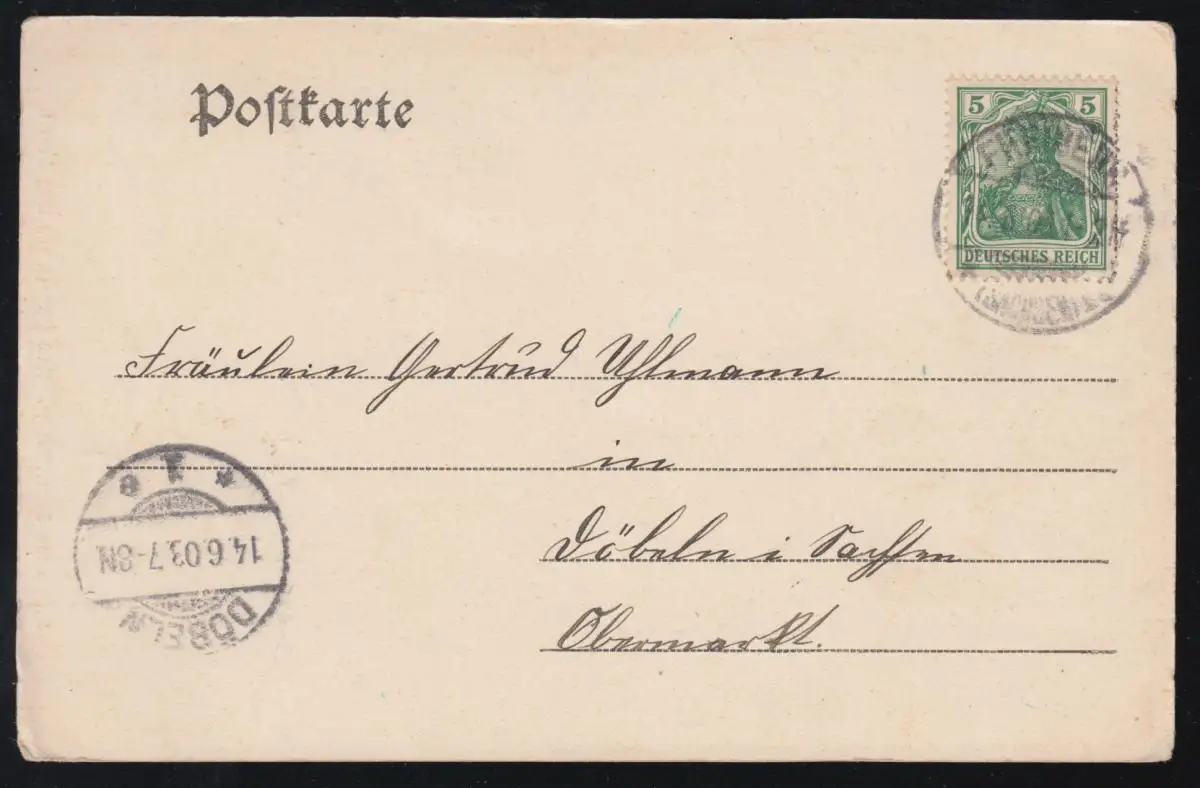 Postkarte
5 5
DEUTSCHES REICH
Fräulein Gertrud Uhlmann
in
Döbeln i Sachsen
Obermarkt.
14.6.03.7-8N
DÖBELN